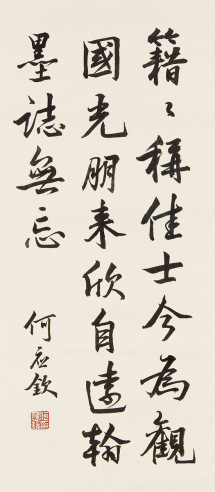 籍〻稱佳士今為觀
國光朋来欣自遠翰
墨誌無忘
何应欽